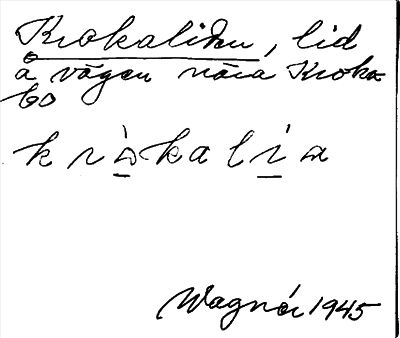 Krokaliden, lid
å vägen nära Kroka-
bo
Wagnér 1945